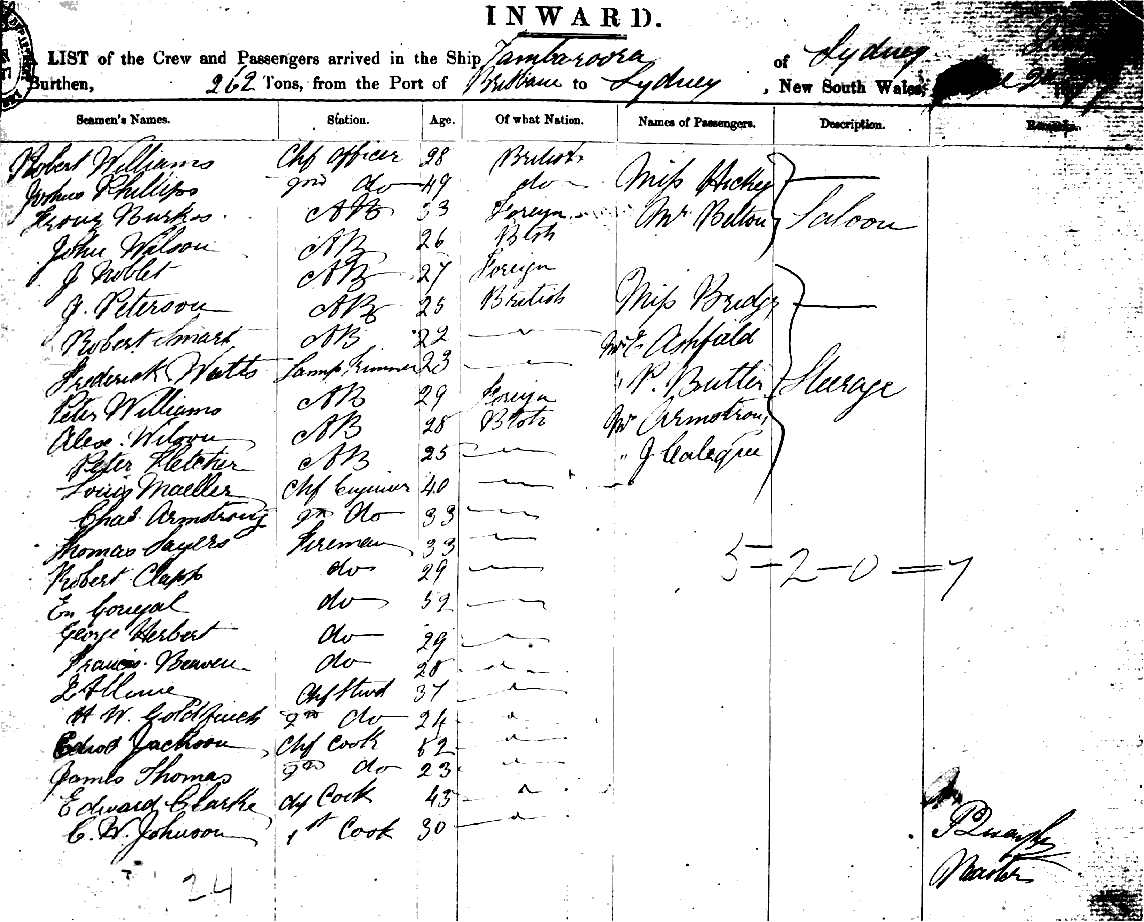 INWARD.
LIST of the Crew and Passengers arrived in the Ship Tambaroora of Sydney
Burthen, 262 Tons, from the Port of Brisbane to Sydney, New South Wales,
Seamen's Names. Station. Age. Of what Nation. Names of Passengers. Description. Remarks.
Robert Williams Chf Officer 28 British Miss Hickey
Philips 2nd do 49 do Mr Belton Saloon
Burkes AB 33 Foreign
John Wilson AB 26 Btsh
J Noblet AB 27 Foreign
J. Peterson AB 25 British Miss Bridge
Robert Smart AB 22 Mr E Ashfield
Frederick Watts Lamp Trimmer 23 " P. Butler Steerage
Peter Williams AB 29 Foreign Mr Armstrong
Alex. Wilson AB 28 Btsh " J
Peter Fletcher AB 25
Louis Maeller Chf Engineer 40
Chas. Armstrong 2nd do 33
Thomas Sayers Fireman 33
Robert Clapp do 29
do 52
George Herbert do 29
Francis Beaven do 28
Chf Stwd 37
H W. Goldfinch 2nd do 24
Edwd Jackson Chf Cook 52
James Thomas 2nd do 23
Edward Clarke Cook 43
C. W. Johnson 1st Cook 30
5-2-0=7
Master
24